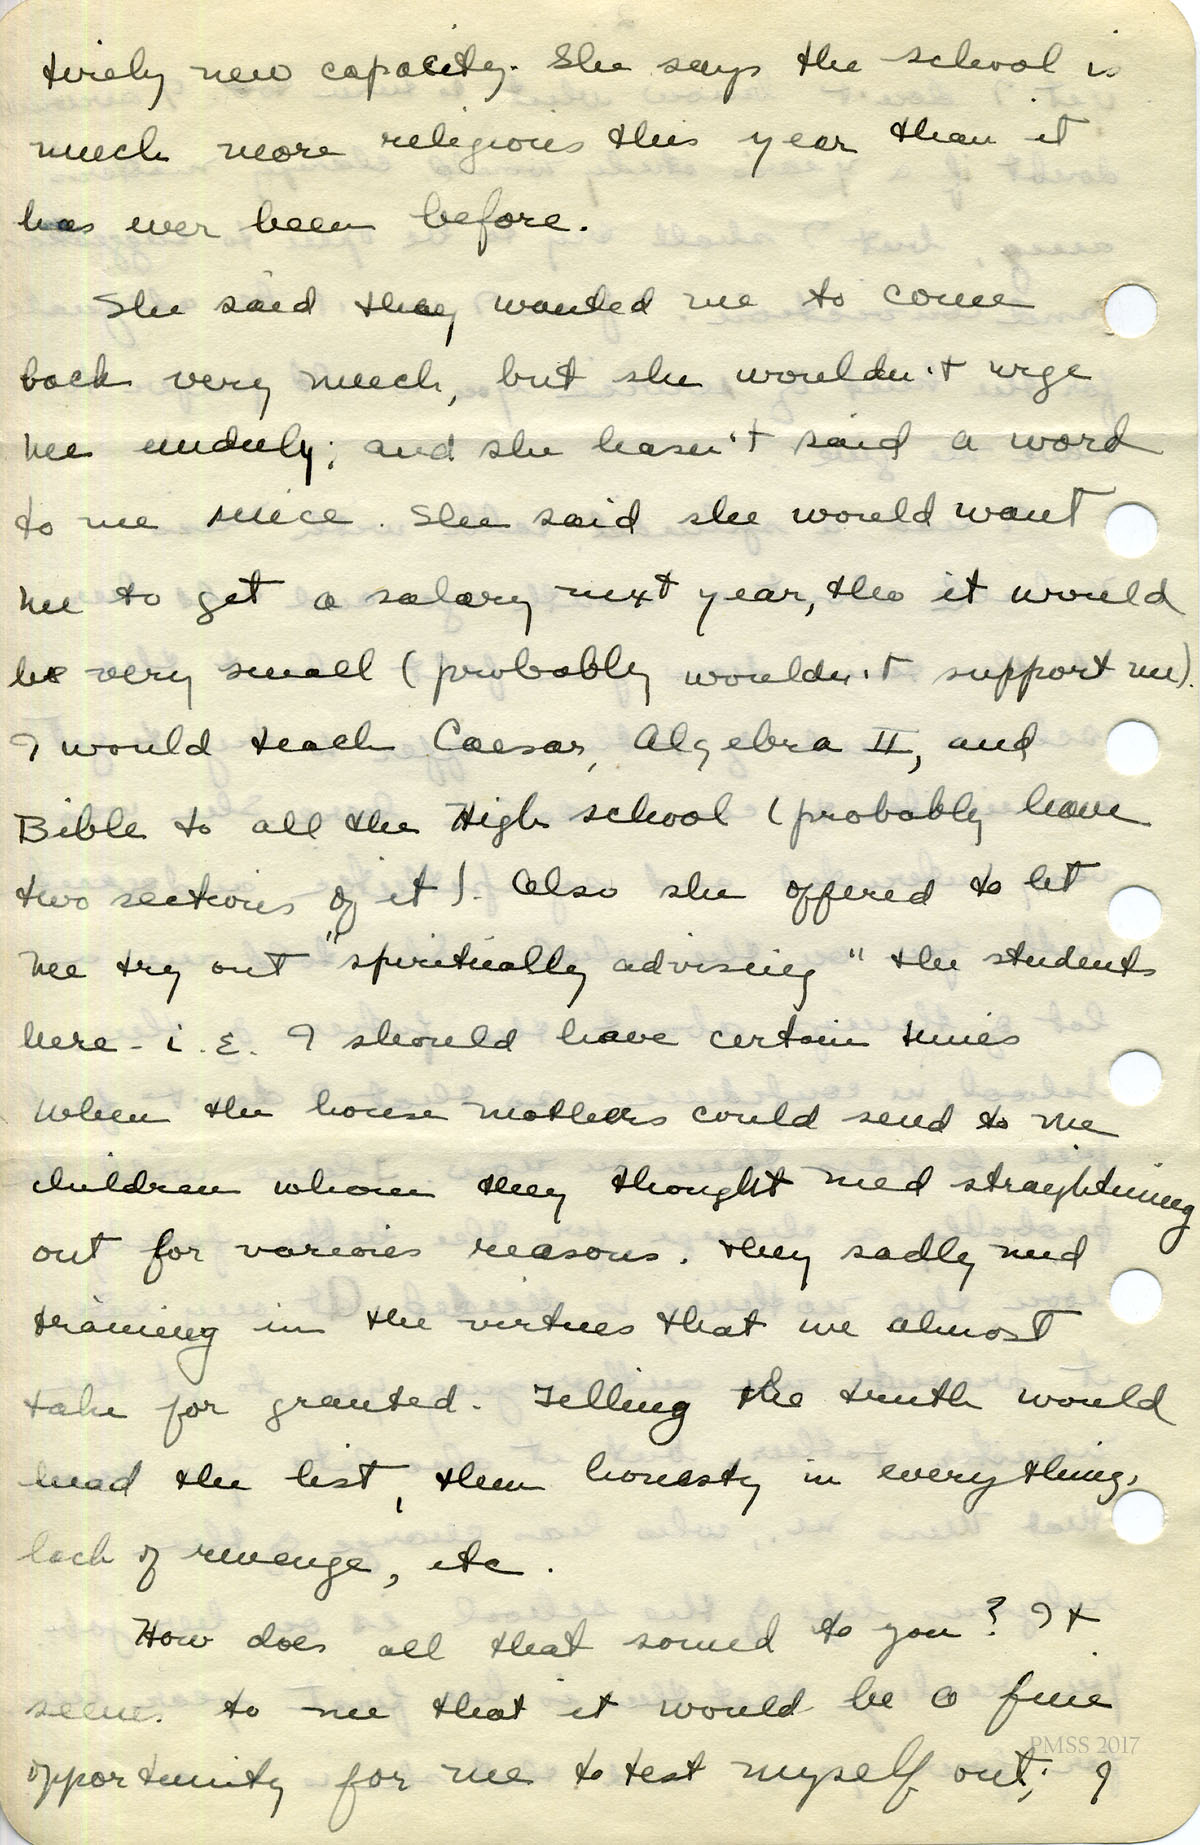 tirely new capacity. She says the school is
much more religious this year than it
has ever been before.
She said they wanted me to come
back very much, but she wouldn't urge
me unduly; and she hasn't said a word
to me since. She said she would want
me to get a salary next year, tho it would
be very small (probably wouldn't support me).
I would teach Caesar, Algebra II, and
Bible to all the High school (probably have
two sections of it). Also she offered to let
me try out "spiritually advising" the students
here - i.e. I should have certain times
when the house mothers could send to me
children whom they thought need straightening
out for various reasons. They sadly need
training in the virtues that we almost
take for granted. Telling the truth would
head the list, then honesty in everything,
lack of revenge, etc.
How does all that sound to you? It
seems to me that it would be a fine
opportunity for me to test myself out; I
PMSS 2017